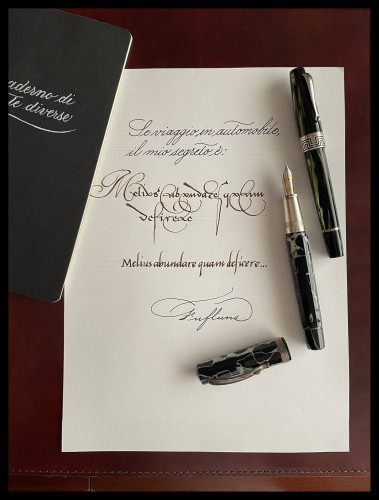 aderno di
te diverse
Se viaggio in automobile,
il mio segreto è:
Melius abundare quam
deficere
Melius abundare quam deficere...
Fufluns